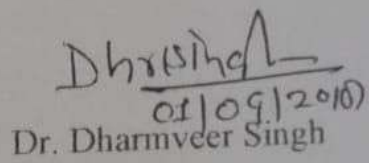 Dhrsingh
01/09/2018
Dr. Dharmveer Singh